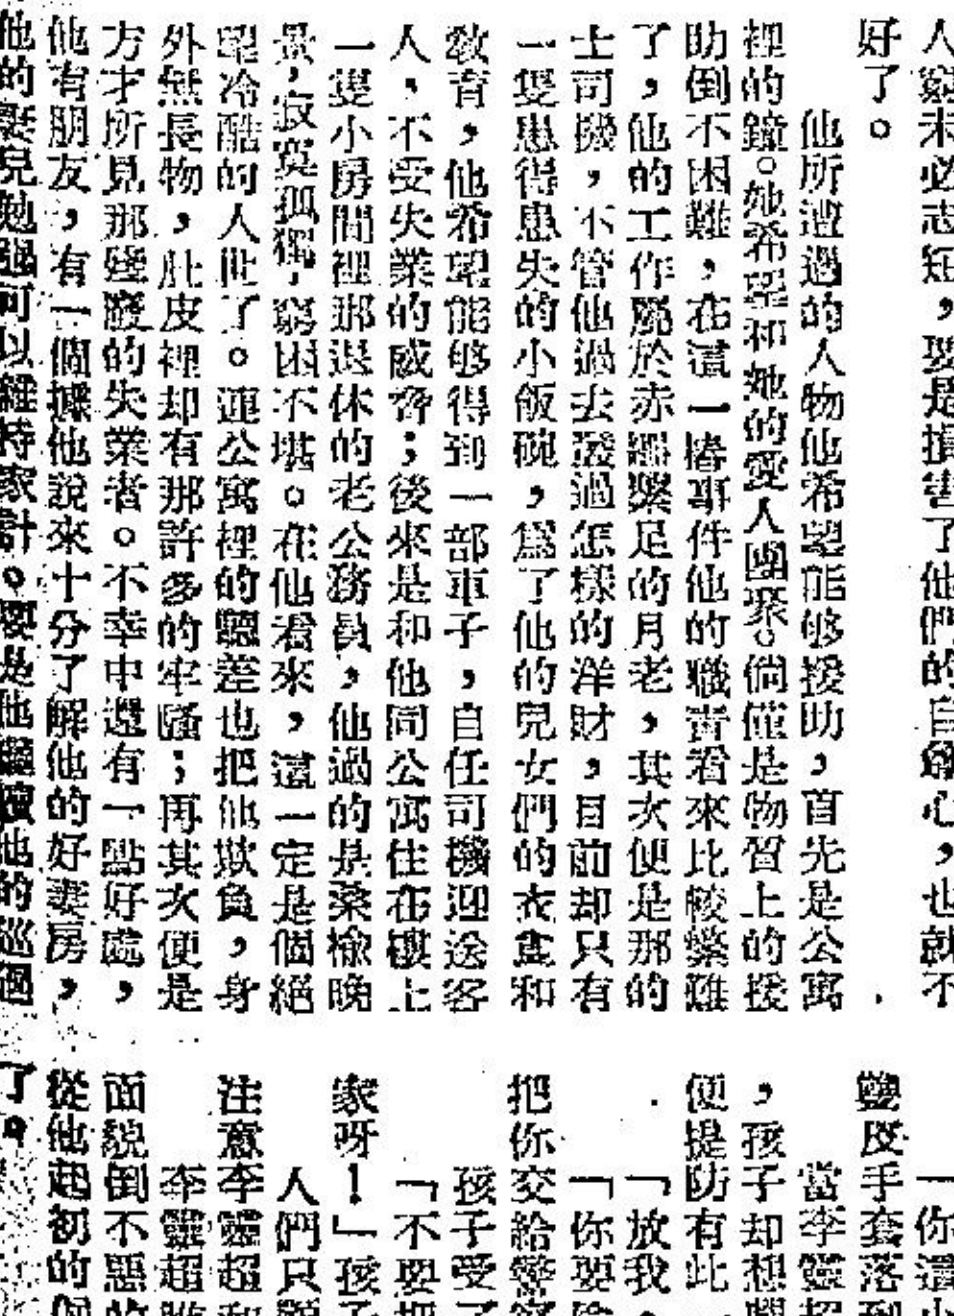 人窮未必志短，要是損害了他們的自尊心，也就不
好了。
他所遭過的人物他希望能够援助，首先是公寓
裡的鐘。她希望和她的愛人團聚。倘僅是物質上的援
助倒不困難，在這一樁事件他的職責看來比較繁難
了，他的工作屬於赤繩繫足的月老，其次便是那的
士司機，不管他過去發過怎樣的洋財，目前却只有
一隻患得患失的小飯碗，爲了他的兒女們的衣食和
敎育，他希望能够得到一部車子，自任司機迎送客
人，不受失業的威脅；後來是和他同公寓住在樓上
一隻小房間裡那退休的老公務員，他過的是桑楡晚
景，寂寞孤獨，窮困不堪。在他看來，這一定是個絕
望冷酷的人世了。連公寓裡的聽差也把他欺負，身
外無長物，肚皮裡却有那許多的牢騷；再其次便是
方才所見那殘廢的失業者。不幸中還有一點好處，
他有朋友，有一個據他說來十分了解他的好妻房，
他的妻兒勉强可以維持家計。要是他繼續他的巡迴
「你這小
鑾反手套落到
當李靈超
，孩子却想
便提防有此
「放我，
「你要
把你交給警察
孩子受了
「不要把
家呀！」孩子
人們只顧
注意李靈超和
李靈超雖
面貌倒不惡的
從他起初的
了。